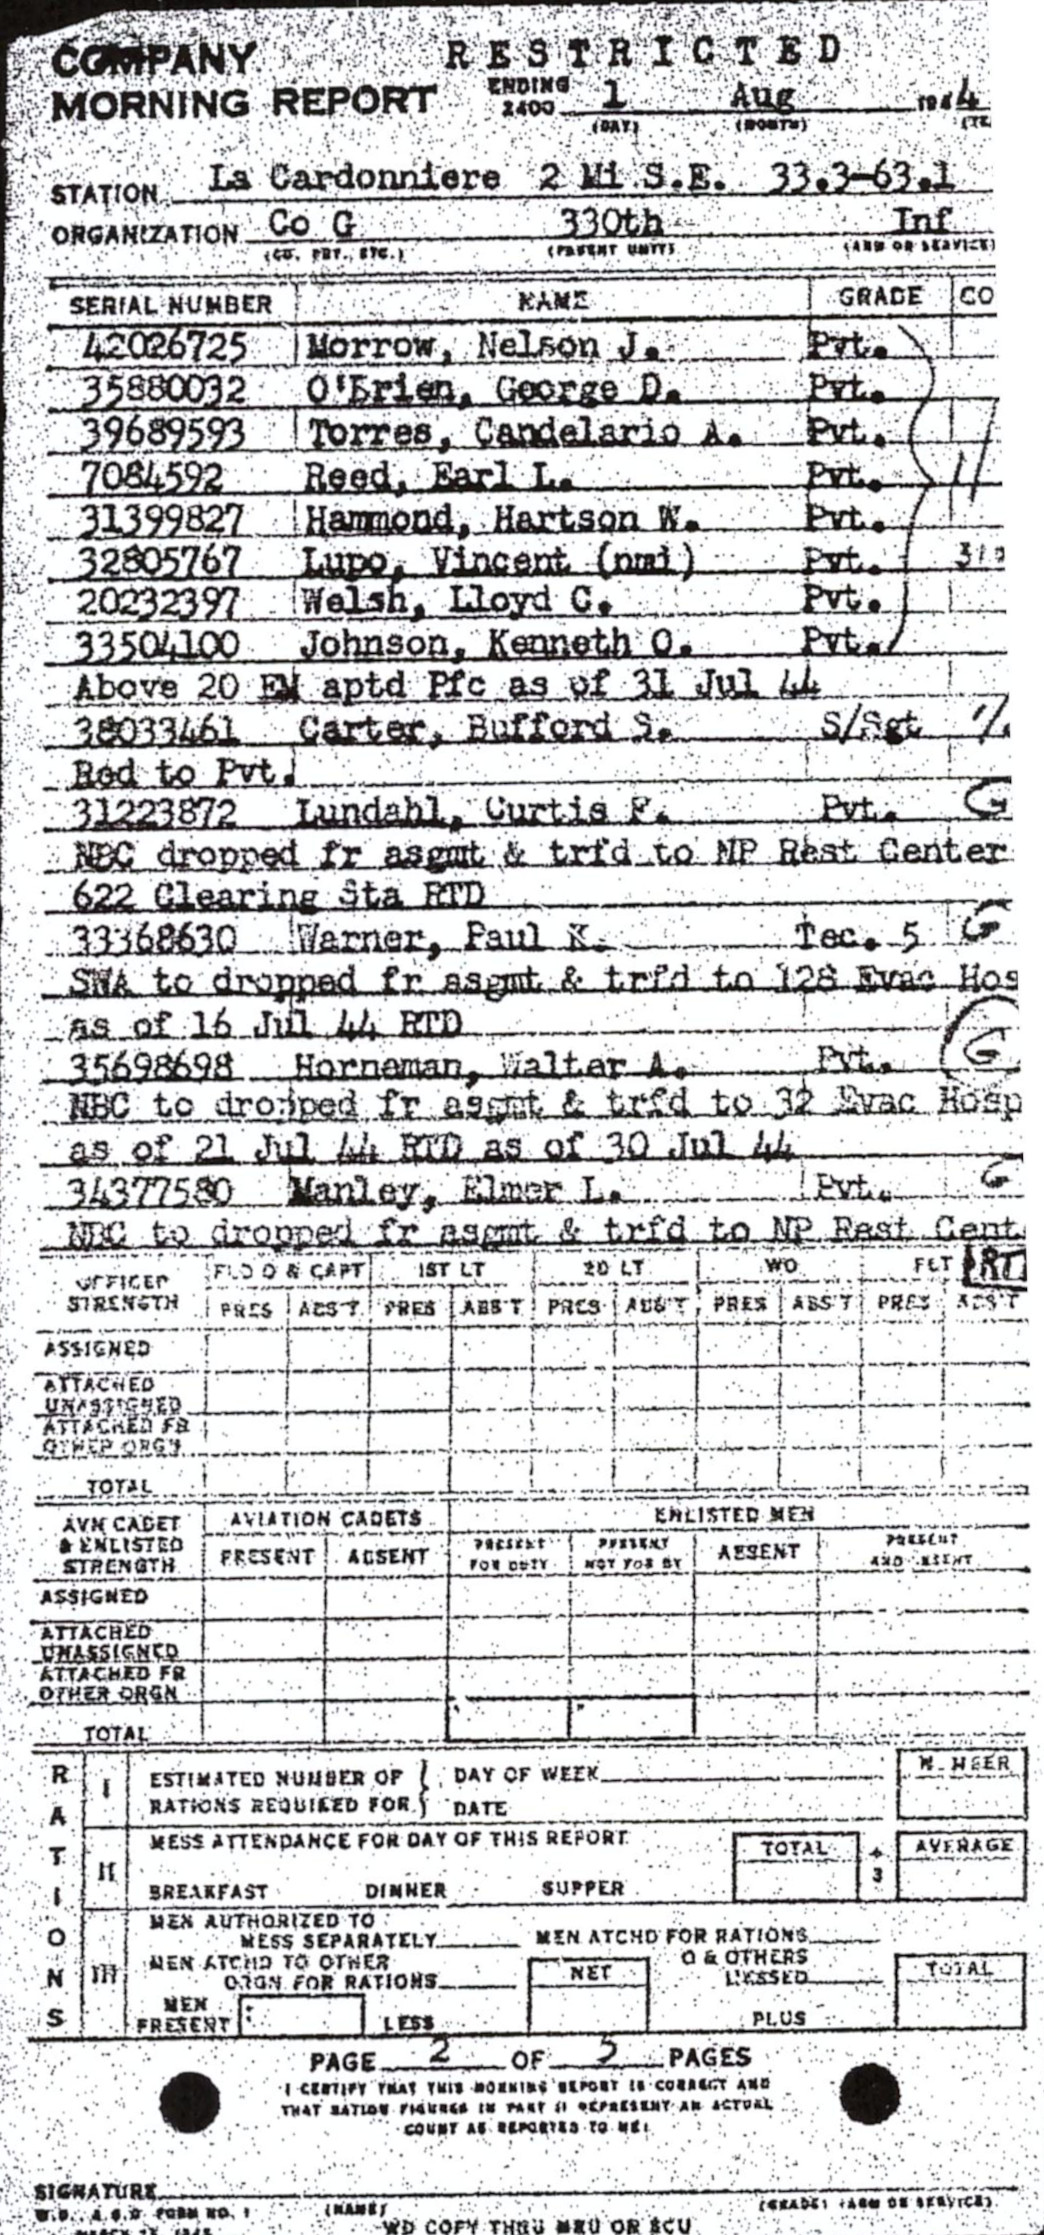 COMPANY RESTRICTED
MORNING REPORT ENDING 2400 1 Aug 1944
(DAY) (MONTH)
STATION La Cardonniere 2 Mi S.E. 33.3-63.1
ORGANIZATION Co G 330th Inf
(CO. BRY., ETC.) (PARENT UNIT) (ARM OR SERVICE)
SERIAL NUMBER NAME GRADE CO
42026725 Morrow, Nelson J. Pvt.
35880032 O'Brien, George D. Pvt.
39689593 Torres, Candelario A. Pvt.
7084592 Reed, Earl L. Pvt.
31399827 Hammond, Hartson W. Pvt.
32805767 Lupo, Vincent (nmi) Pvt.
20232397 Welsh, Lloyd C. Pvt.
33504100 Johnson, Kenneth O. Pvt.
Above 20 EM aptd Pfc as of 31 Jul 44
38033461 Carter, Bufford S. S/Sgt
Red to Pvt.
31223872 Lundahl, Curtis F. Pvt. G
NBC dropped fr asgmt & trfd to NP Rest Center
622 Clearing Sta RTD
33368630 Warner, Paul K. Tec. 5 G
SWA to dropped fr asgmt & trfd to 128 Evac Hos
as of 16 Jul 44 RTD
35698698 Horneman, Walter A. Pvt. G
NBC to dropped fr asgmt & trfd to 32 Evac Hosp
as of 21 Jul 44 RTD as of 30 Jul 44
34377580 Manley, Elmer L. Pvt. G
NBC to dropped fr asgmt & trfd to NP Rest Cent
OFFICER STRENGTH FLD O & CAPT 1ST LT 2D LT WO FLT
PRES ABS'T PRES ABS'T PRES ABS'T PRES ABS'T PRES ABS'T
ASSIGNED
ATTACHED UNASSIGNED
ATTACHED FR OTHER ORGN
TOTAL
AVN CADET & ENLISTED STRENGTH AVIATION CADETS ENLISTED MEN
PRESENT ABSENT PRESENT FOR DUTY PRESENT NOT FOR DY ABSENT PRESENT AND ABSENT
ASSIGNED
ATTACHED UNASSIGNED
ATTACHED FR OTHER ORGN
TOTAL
RATIONS
I ESTIMATED NUMBER OF RATIONS REQUIRED FOR DAY OF WEEK NUMBER
DATE
II MESS ATTENDANCE FOR DAY OF THIS REPORT TOTAL ÷ 3 AVERAGE
BREAKFAST DINNER SUPPER
III MEN AUTHORIZED TO MESS SEPARATELY MEN ATCHD FOR RATIONS
MEN ATCHD TO OTHER ORGN FOR RATIONS NET O & OTHERS MESSED TOTAL
MEN PRESENT LESS PLUS
PAGE 2 OF 5 PAGES
I CERTIFY THAT THIS MORNING REPORT IS CORRECT AND
THAT RATION FIGURES IN PART II REPRESENT AN ACTUAL
COUNT AS REPORTED TO ME:
SIGNATURE
(NAME) (GRADE) (ARM OR SERVICE)
W.D., A.G.O. FORM NO. 1
WD COPY THRU MRU OR SCU